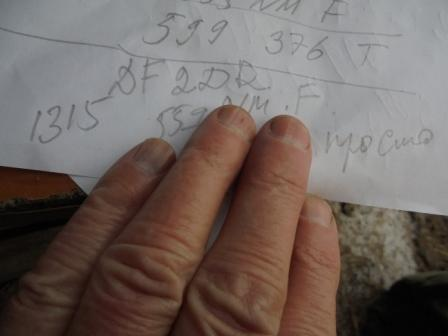 NM F
599 376 T
DF2DR
1315 559 NM.F просто